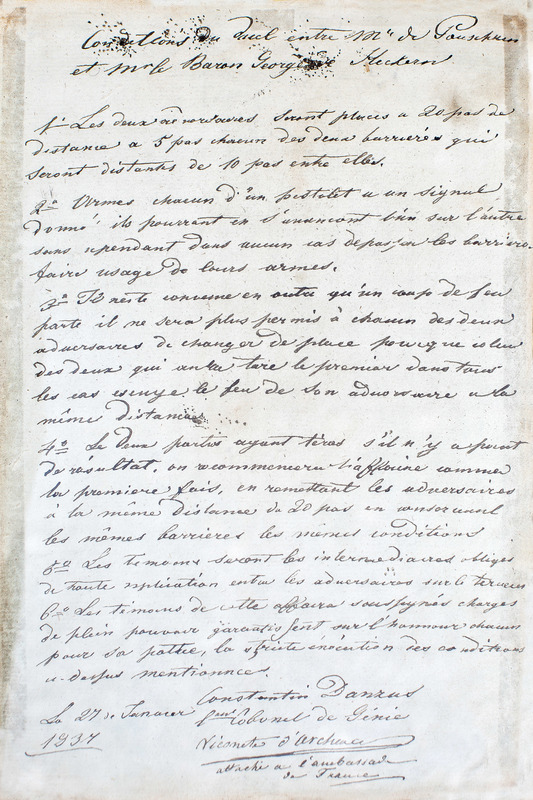 Conditions du duel entre Mr de Pouschkin
et Mr le Baron Georges de Heckern
1º Les deux adversaires seront placés a 20 pas de
distance a 5 pas chacun des deux barrières qui
seront distantes de 10 pas entre elles.
2º Armés chacun d'un pistolet a un signal
donné ils pourront en s'avancant l'un sur l'autre
sans cependant dans aucun cas depasser les barrieres
faire usage de leurs armes.
3º Il reste convenu en outre qu'un coup de feu
parti il ne sera plus permis à chacun des deux
adversaires de changer de place pour que celui
des deux qui aura tiré le premier dans tous
les cas essuye le feu de son adversaire a la
même distance
4º Les deux parties ayant tirés s'il n'y a point
de résultat, on recommencera l'affaire comme
la premiere fois, en remettant les adversaires
à la même distance de 20 pas en conservant
les mêmes barrières les mêmes conditions
5º Les temoins seront les intermediaires obligés
de toute explication entre les adversaires sur le terrein
6º Les témoins de cette affaire soussignés chargés
de plein pouvoir garantissent sur l'honneur chacun
pour sa partie, la stricte exécution des conditions
ci-dessus mentionnées.
Constantin Danzas
Le 27 de Janvier Colonel de Génie
1937 Viconte d'Archiac
attaché a l'ambassade
de France